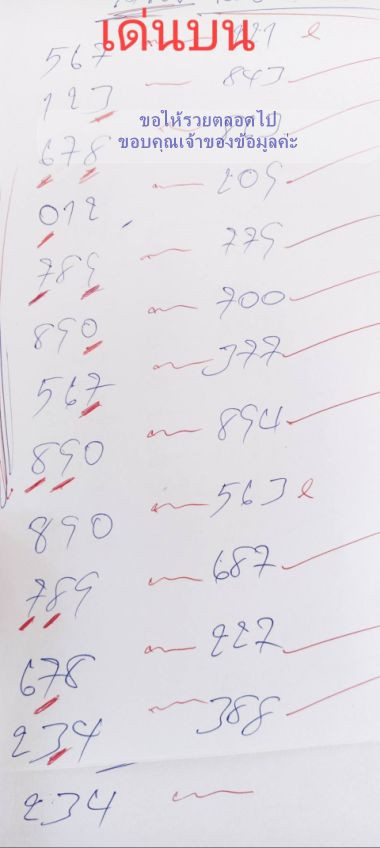 เด่นบน
567
123 843
ขอให้รวยตลอดไป
ขอบคุณเจ้าของข้อมูลค่ะ
678
012 209
789 779
890 700
567 377
890 894
890 563
789 687
678 227
234 388
234